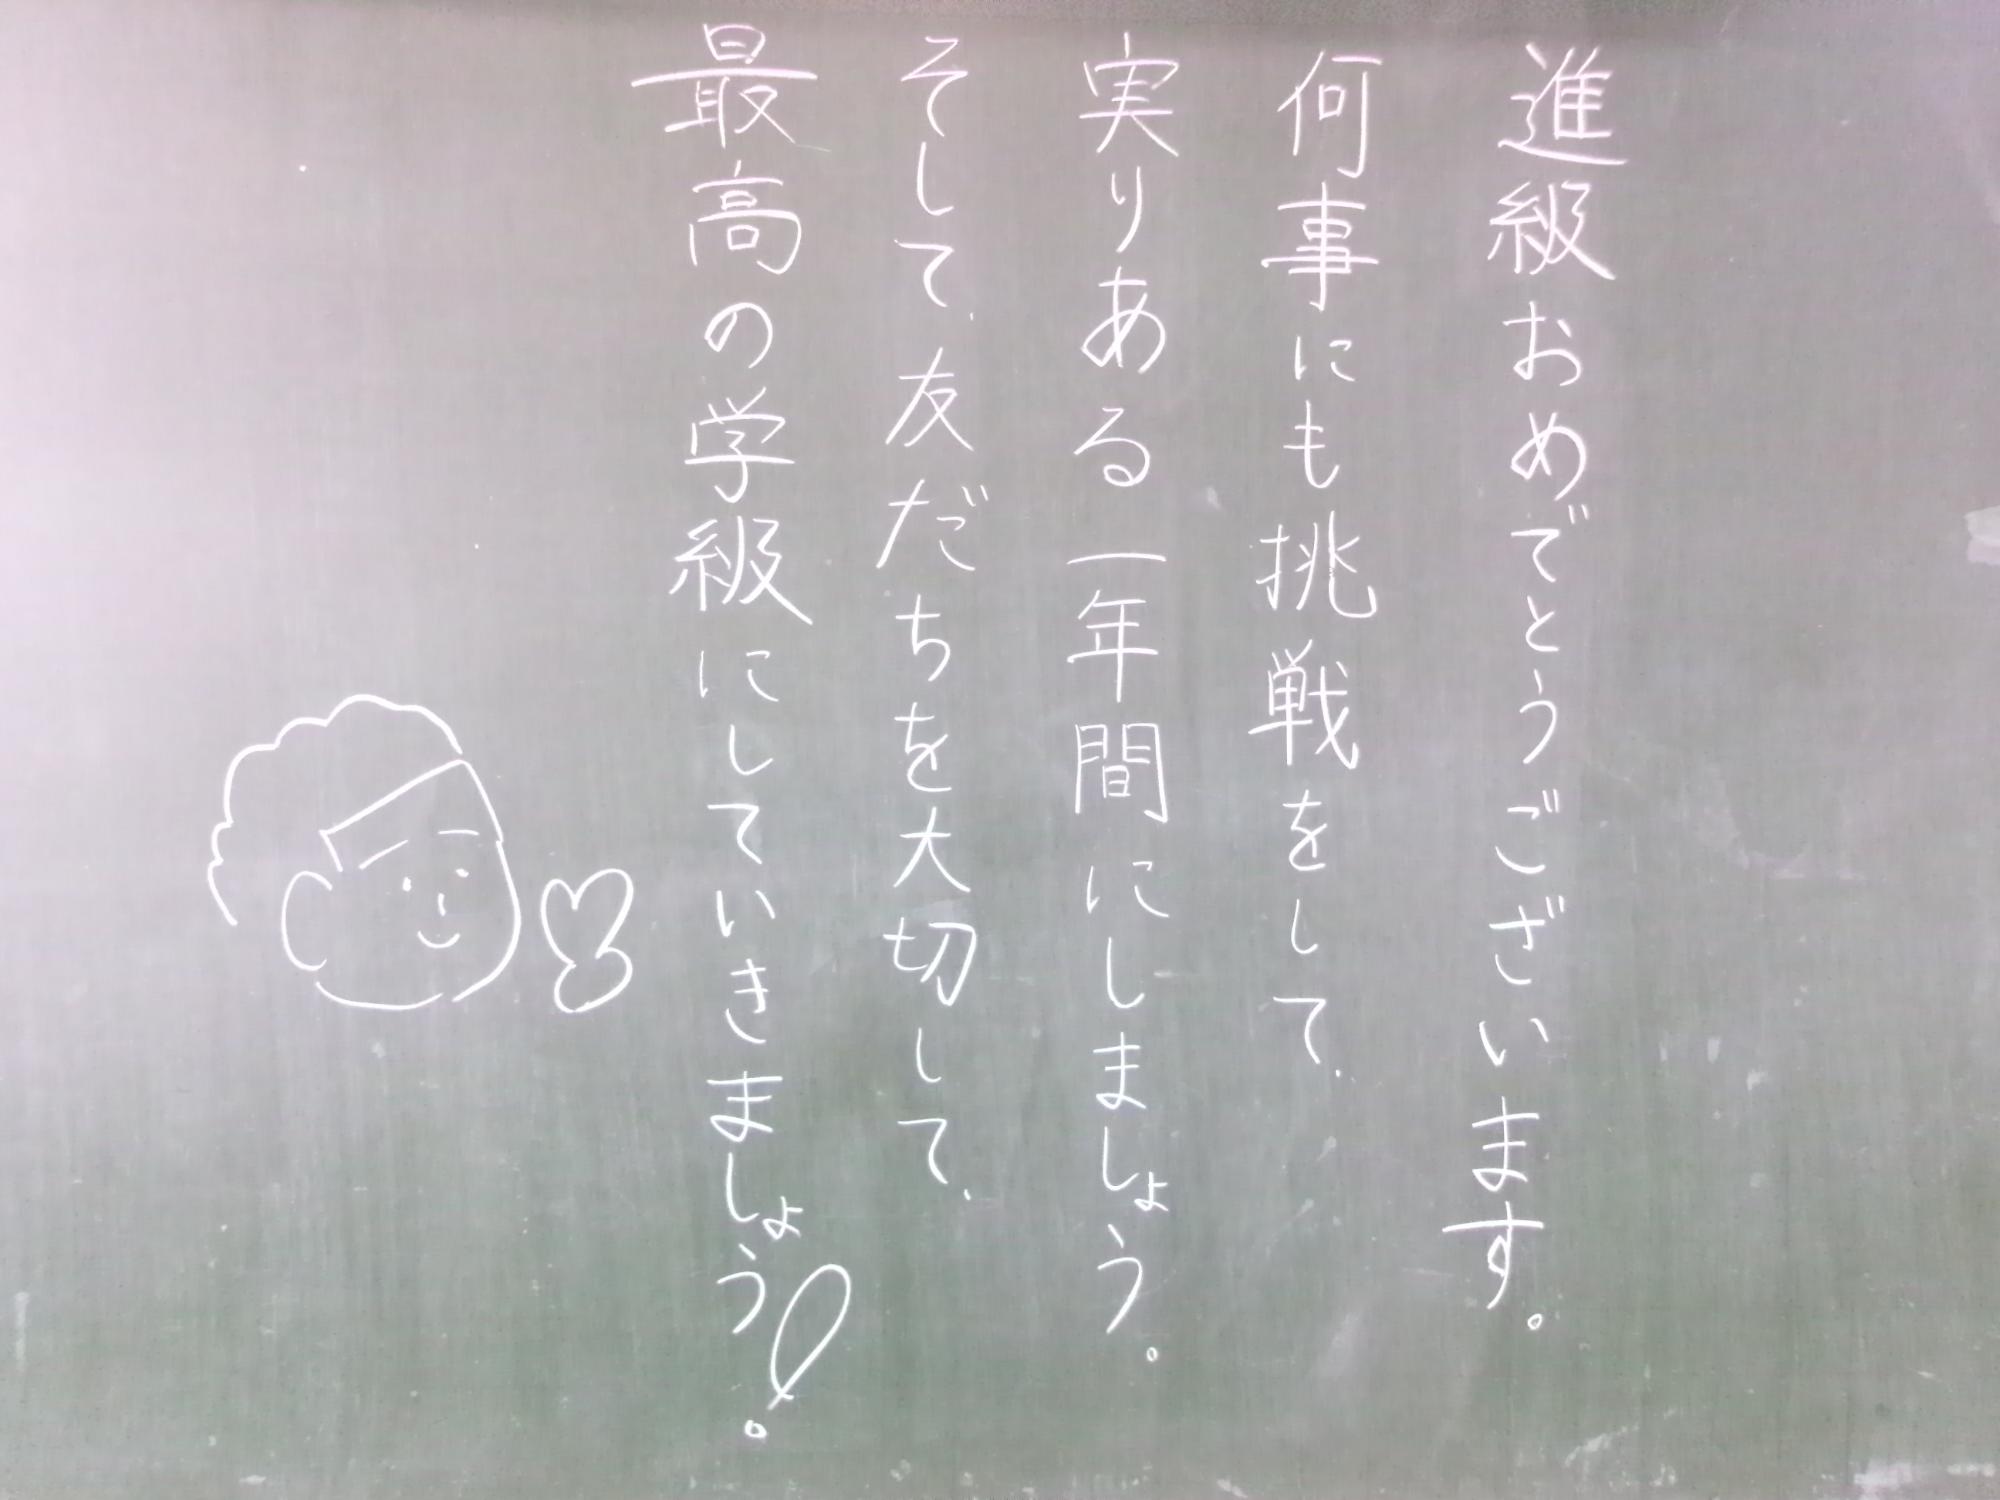 進級おめでとうございます。
何事にも挑戦をして、
実りある一年間にしましょう。
そして、友だちを大切して、
最高の学級にしていきましょう!